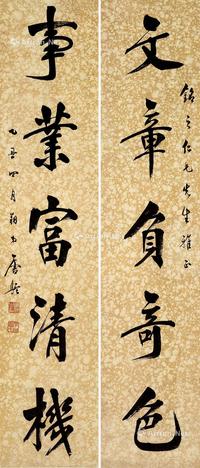 銘之仁兄先生雅正
文章負奇色
事業富清機
乙丑四月翔